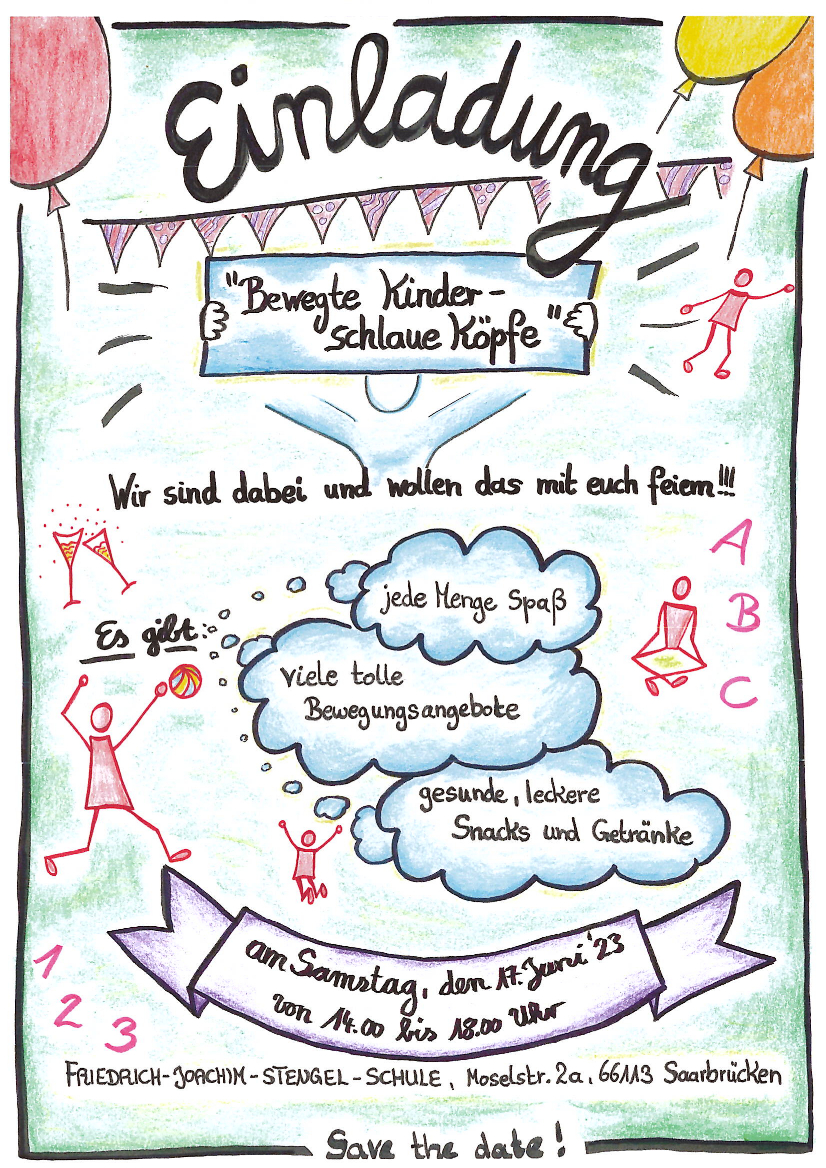 Einladung
"Bewegte Kinder -
schlaue Köpfe"
Wir sind dabei und wollen das mit euch feiern!!!
A
B
C
Es gibt:
jede Menge Spaß
viele tolle
Bewegungsangebote
gesunde, leckere
Snacks und Getränke
1
2
3
am Samstag, den 17. Juni '23
von 14.00 bis 18.00 Uhr
FRIEDRICH-JOACHIM-STENGEL-SCHULE, Moselstr. 2a, 66113 Saarbrücken
Save the date!